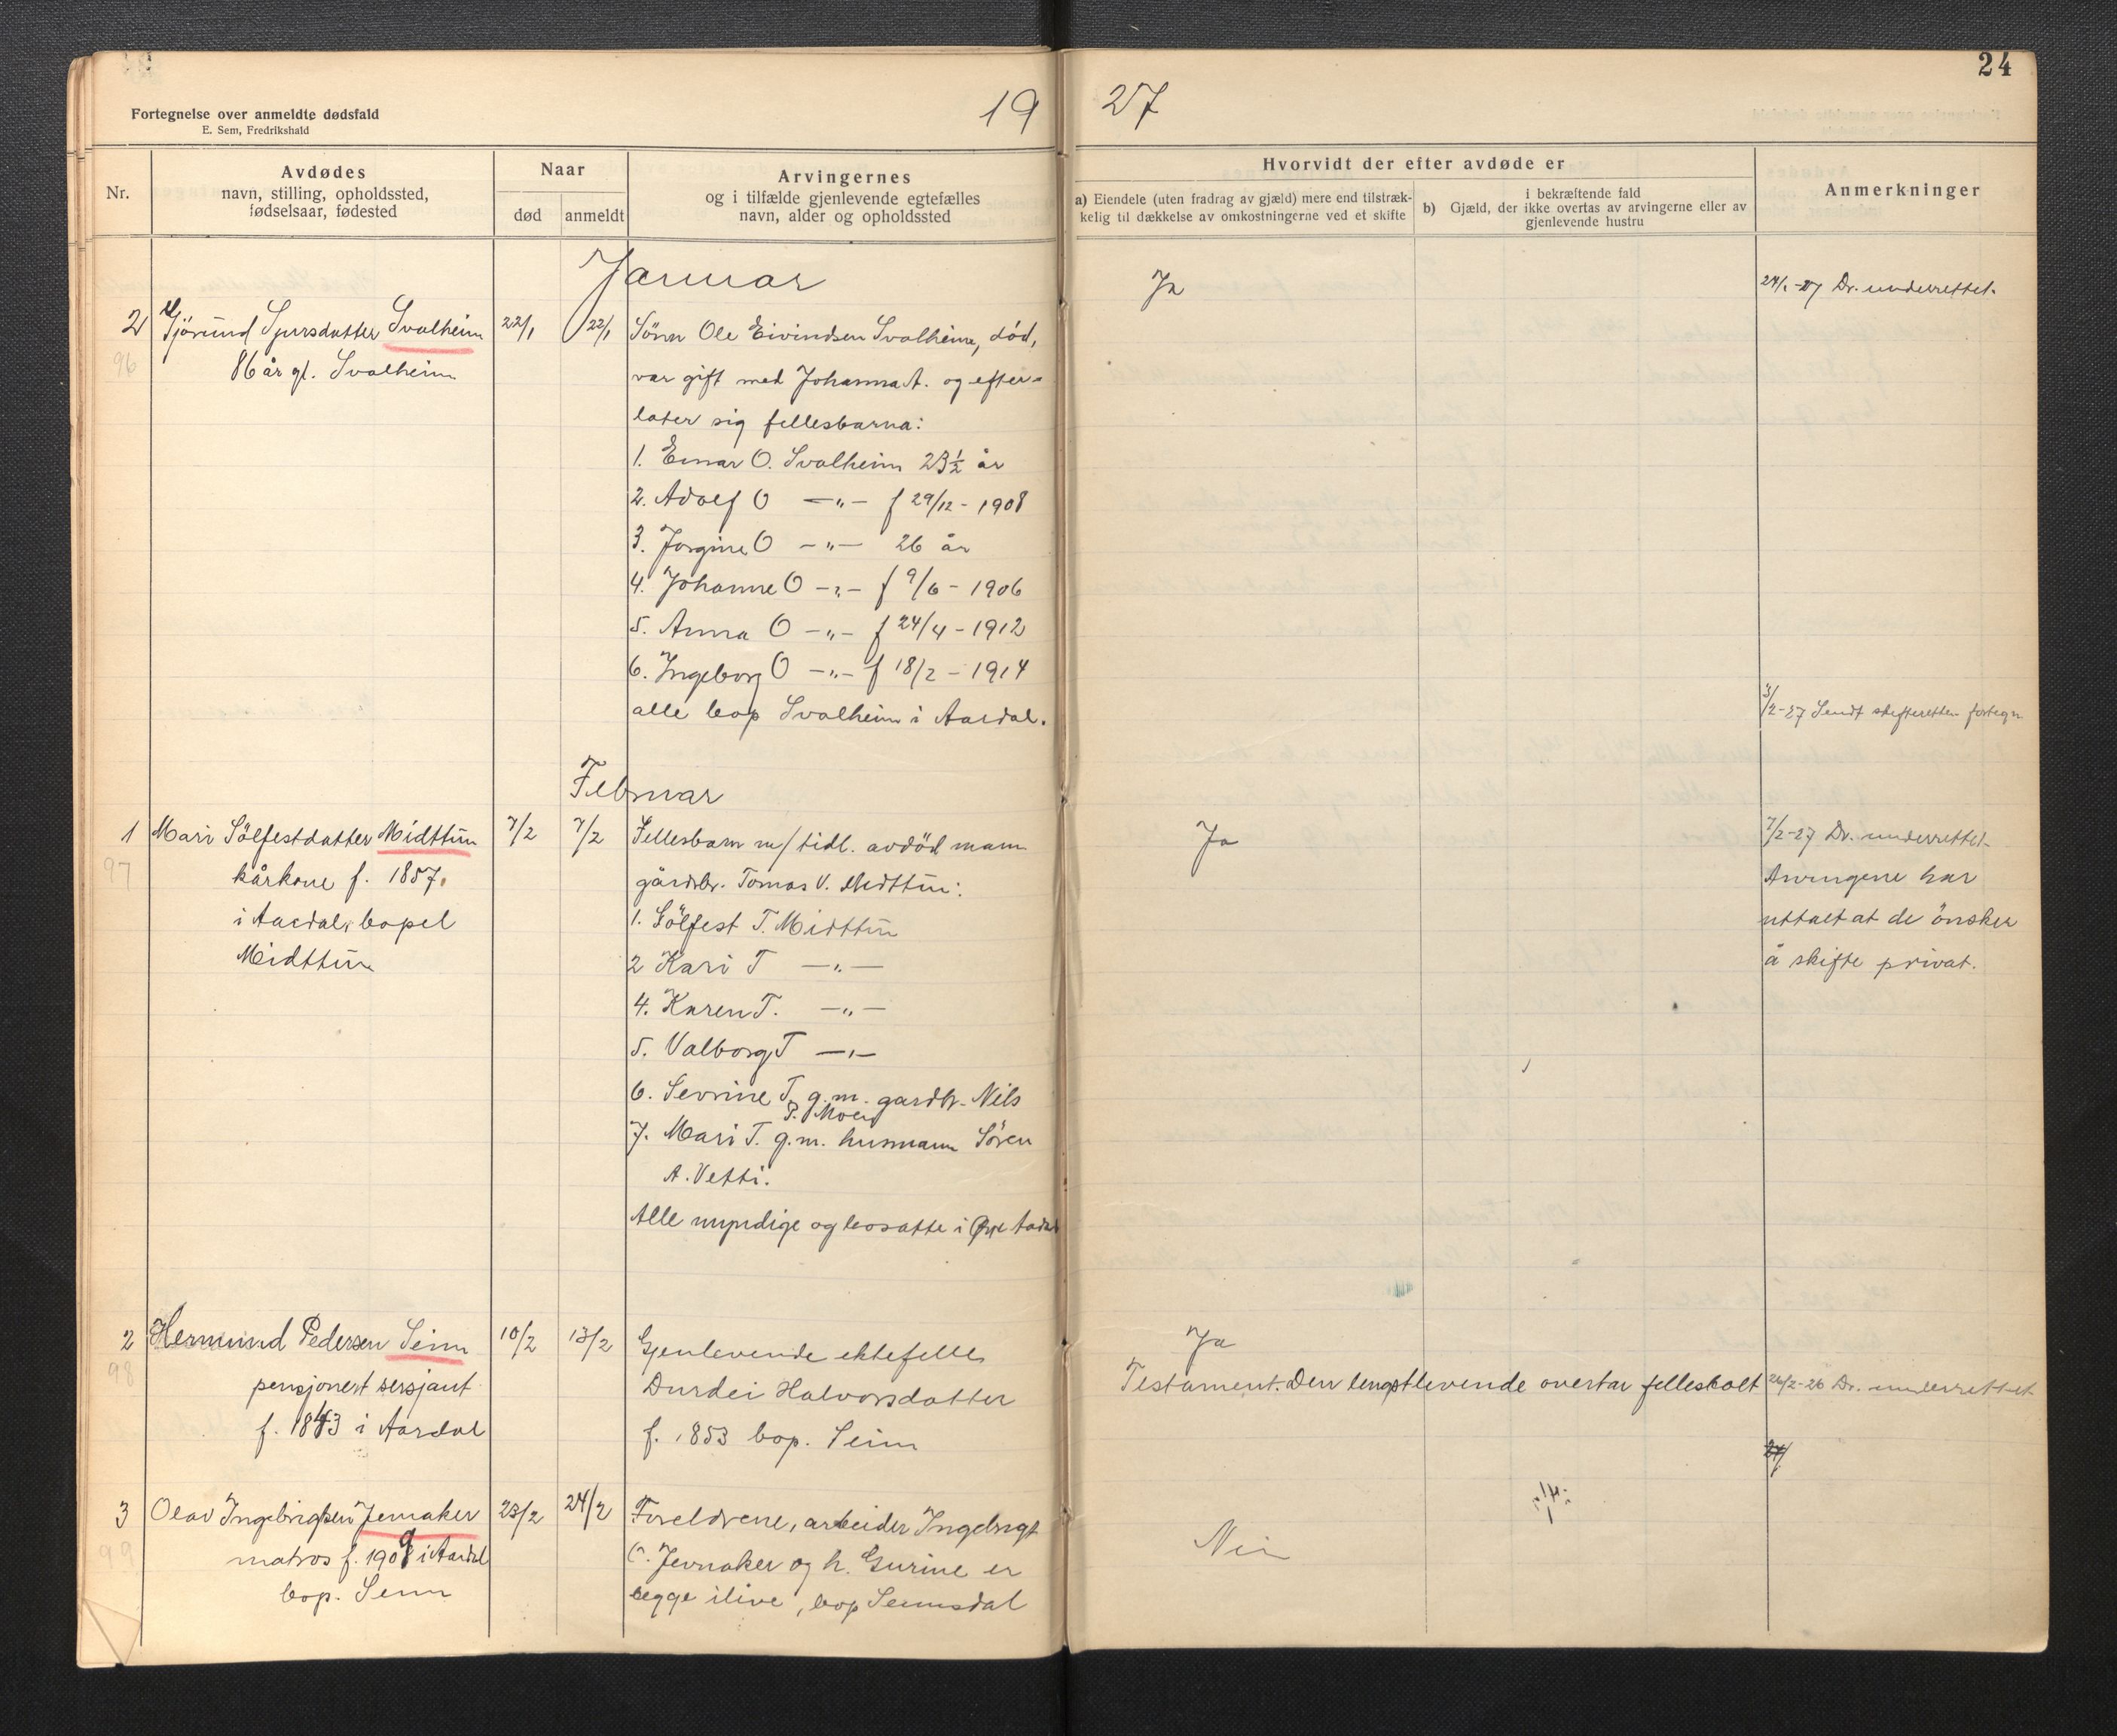 24
Fortegnelse over anmeldte dødsfald
E. Sem, Fredrikshald
19 27
Nr.
Avdødes
navn, stilling, opholdssted,
fødselsaar, fødested
Naar
død
anmeldt
Arvingernes
og i tilfælde gjenlevende egtefælles
navn, alder og opholdssted
Hvorvidt der efter avdøde er
a) Eiendele (uten fradrag av gjæld) mere end tilstræk-
kelig til dækkelse av omkostningerne ved et skifte
i bekræftende fald
b) Gjæld, der ikke overtas av arvingerne eller av
gjenlevende hustru
Anmerkninger
Januar
2
96
Sjursdatter Svalheim
86 år gl. Svalheim
22/1
22/1
Sönn Ole Eivindsen Svalheim, död,
var gift med Johanna A. og efter-
later sig fellesbarna:
1. Einar O. Svalheim 23½ år
2. Adolf O —"— f 29/12 - 1908
3. Jorgine O —"— 26 år
4. Johanne O —"— f 9/6 - 1906
5. Anna O —"— f 24/4 - 1912
6. Ingeborg O —"— f 18/2 - 1914
alle bop Svalheim i Aardal.
Ja
24/1-27 Dr. underrettet.
3/2-27 Sendt skifteretten fortegn
Februar
1
97
Mari Sölfestdatter Midttun
kårkone f. 1857,
i Aardal, bopel
Midttun
7/2
7/2
Fellesbarn m/ tidl. avdöd mann
gårdbr. Tomas V. Midttun:
1. Sölfest T. Midttun
2 Kari T —"—
4. Karen T. —"—
5. Valborg T —"—
6. Sevrine T. g.m. gardbr. Nils
P. Moen
7. Mari T. g.m. husmann Sören
A. Vetti.
Alle myndige og bosatte i Øvre Aardal
Ja
7/2-27 Dr. underrettet.
Arvingene har
uttalt at de önsker
å skifte privat.
2
98
Hermund Pedersen Seim
pensjonert sersjant
f. 1843 i Aardal
10/2
13/2
Gjenlevende ektefelle
Durdei Halvorsdatter
f. 1853 bop. Seim
Ja
Testament. Den lengstlevende overtar felleskolt
26/2-26 Dr. underrettet
3
99
Olav Ingebrigtsen Jevnaker
matros f. 1909 i Aardal
bop. Seim
23/2
24/2
Foreldrene, arbeider Ingebrigt
O. Jevnaker og h. Gurine er
begge ilive, bop Seimsdal
Nei